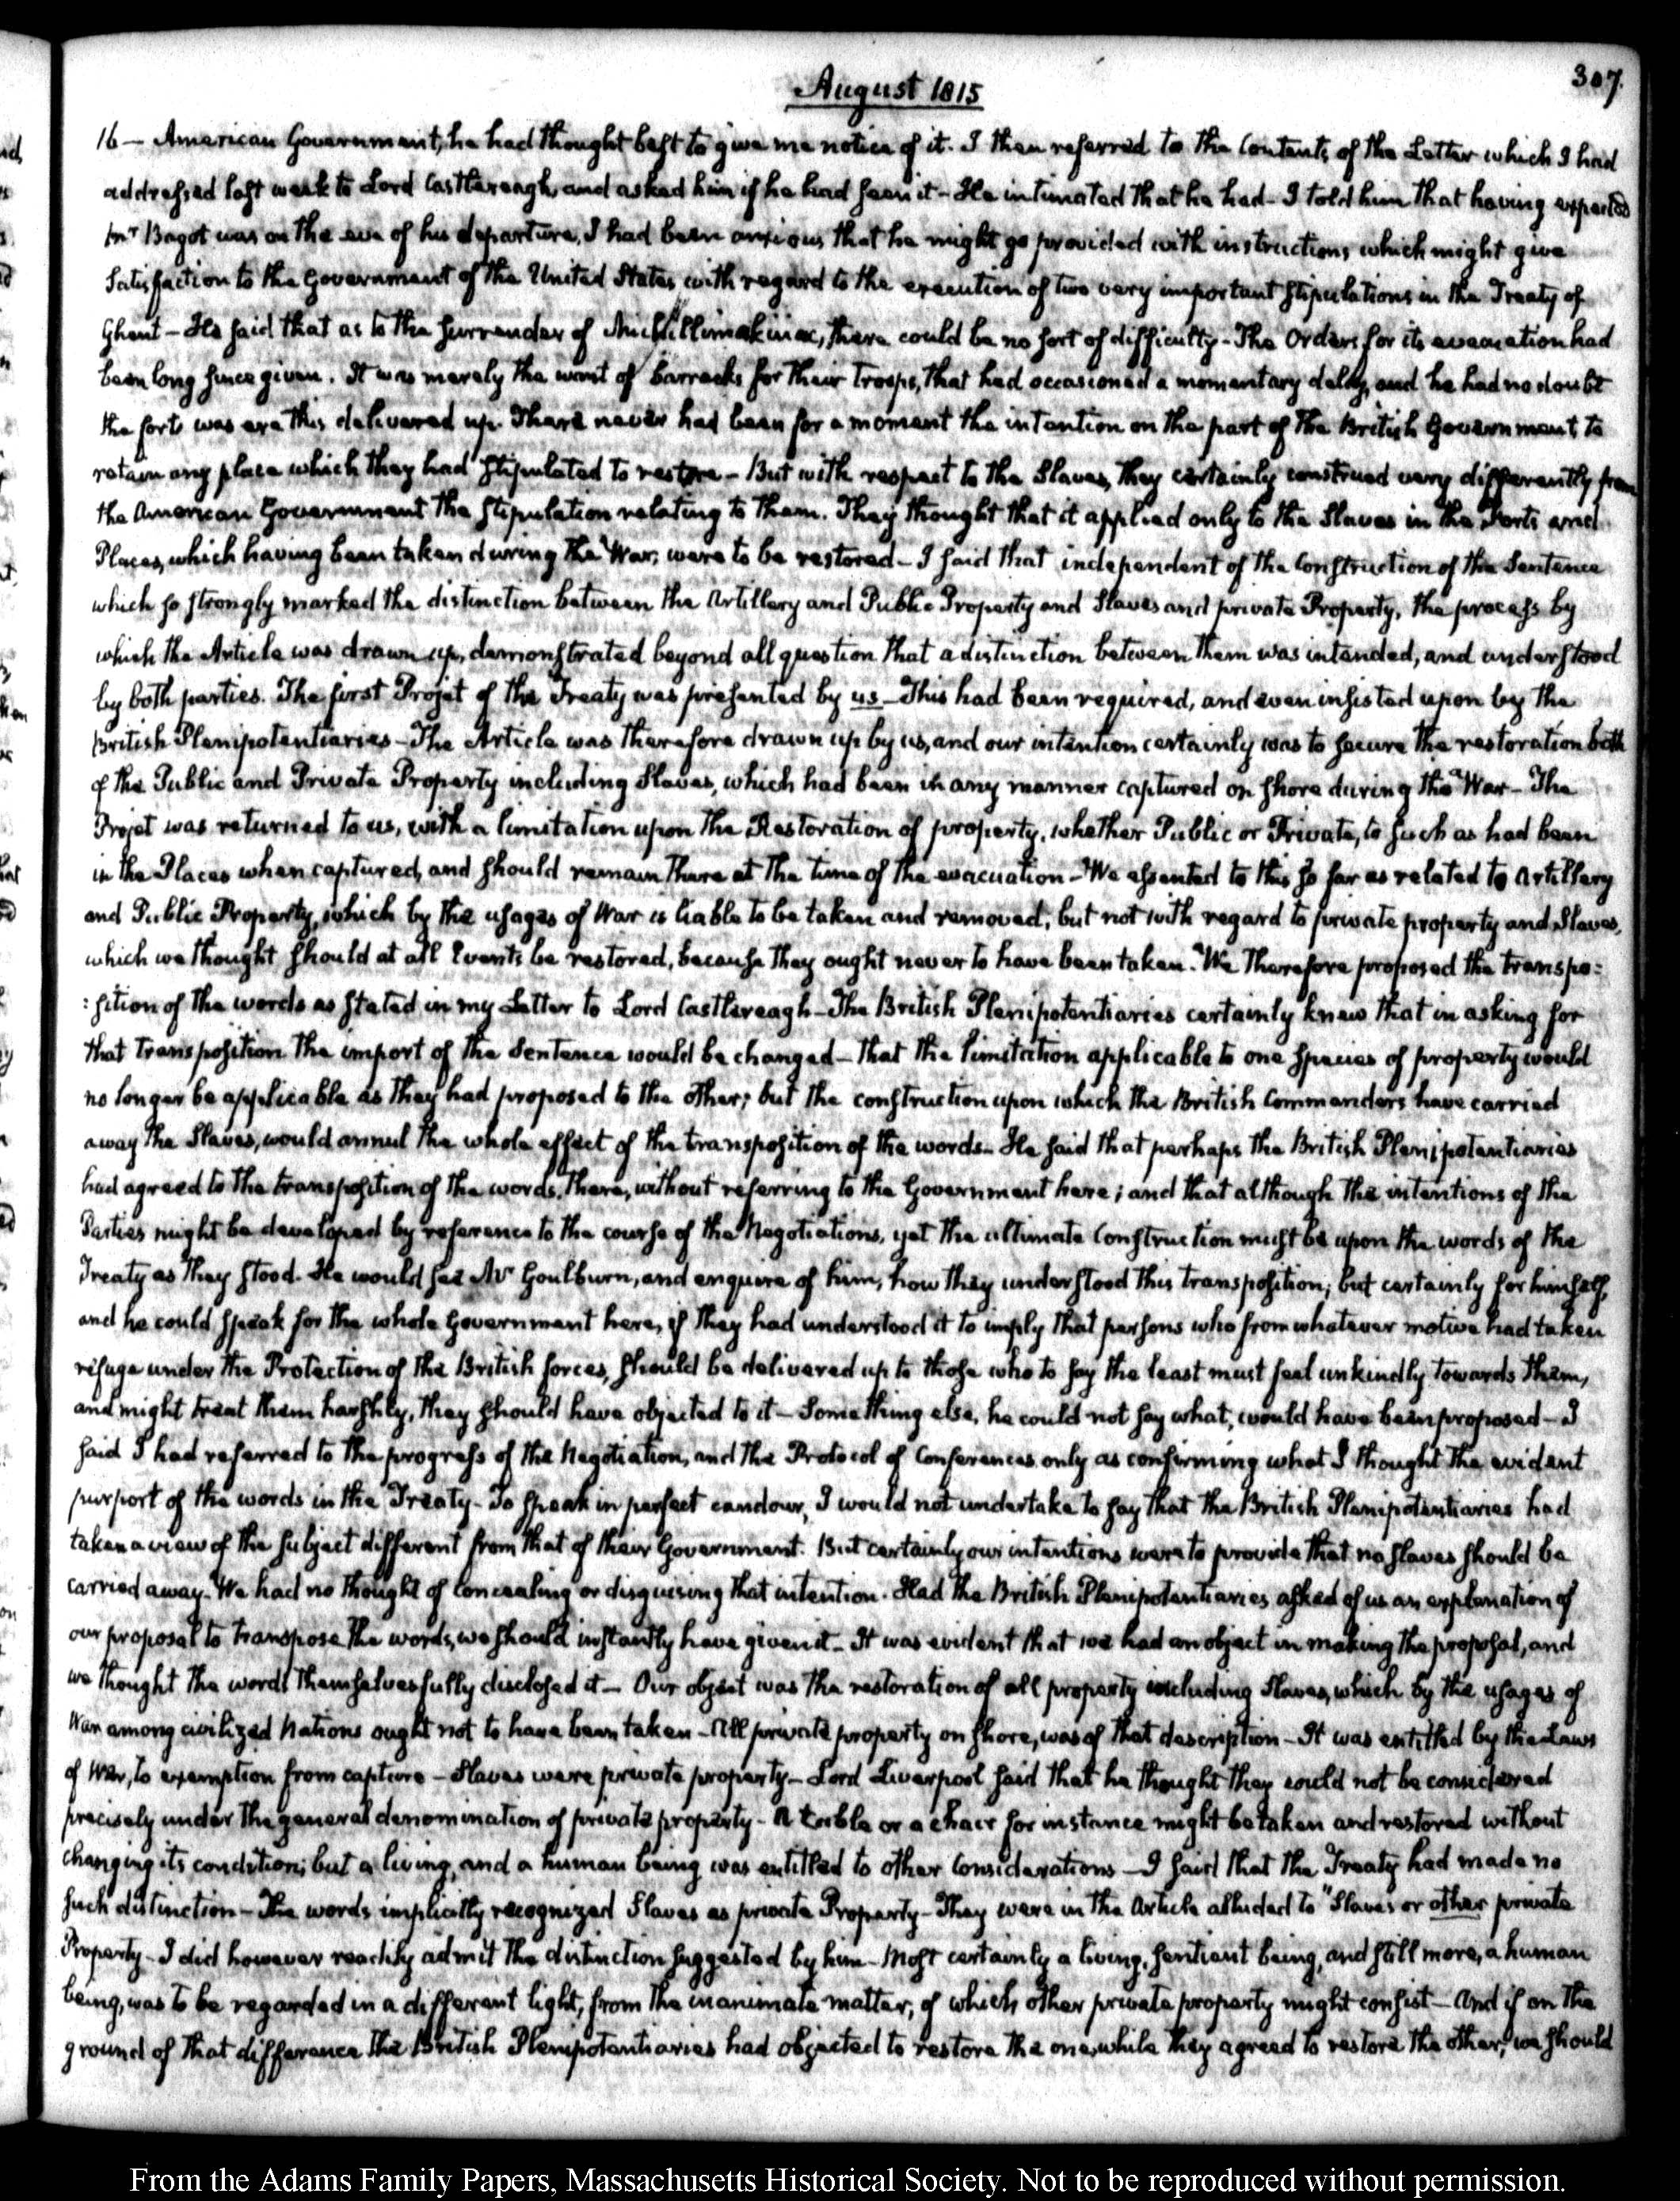 August 1815
307.
16 — American Government, he had thought best to give me notice of it. I then referred to the Contents of the Letter which I had
addressed last week to Lord Castlereagh, and asked him if he had seen it — He intimated that he had — I told him that having expected
Mr Bagot was on the eve of his departure, I had been anxious that he might go provided with instructions which might give
Satisfaction to the Government of the United States with regard to the execution of two very important stipulations in the Treaty of
Ghent — He said that as to the surrender of Michillimakinac, there could be no sort of difficulty — The Orders for its evacuation had
been long since given. It was merely the want of barracks for their troops, that had occasioned a momentary delay, and he had no doubt
the fort was ere this delivered up. There never had been for a moment the intention on the part of the British Government to
retain any place which they had stipulated to restore — But with respect to the Slaves, they certainly construed very differently from
the American Government the stipulation relating to them. They thought that it applied only to the Slaves in the Forts and
Places, which having been taken during the War, were to be restored — I said that independent of the Construction of the Sentence
which so strongly marked the distinction between the Artillery and Public Property and Slaves and private Property, the process by
which the Article was drawn up, demonstrated beyond all question that a distinction between them was intended, and understood
by both parties. The first Projet of the Treaty was presented by us — This had been required, and even insisted upon by the
British Plenipotentiaries — The Article was therefore drawn up by us, and our intention certainly was to secure the restoration both
of the Public and Private Property including Slaves, which had been in any manner captured on shore during the War — The
Projet was returned to us, with a limitation upon the Restoration of property, whether Public or Private, to such as had been
in the Places when captured, and should remain there at the time of the evacuation — We assented to this so far as related to Artillery
and Public Property, which by the usages of War is liable to be taken and removed; but not with regard to private property and Slaves,
which we thought should at all Events be restored, because they ought never to have been taken. We therefore proposed the transpo:
:sition of the words as stated in my Letter to Lord Castlereagh — The British Plenipotentiaries certainly knew that in asking for
that transposition the import of the Sentence would be changed — that the limitation applicable to one species of property would
no longer be applicable as they had proposed to the other; but the construction upon which the British Commanders have carried
away the Slaves, would annul the whole effect of the transposition of the words — He said that perhaps the British Plenipotentiaries
had agreed to the transposition of the words, there, without referring to the Government here; and that although the intentions of the
Parties might be developed by reference to the course of the Negotiations, yet the ultimate Construction must be upon the words of the
Treaty as they stood. He would see Mr Goulburn, and enquire of him, how they understood this transposition; but certainly for himself,
and he could speak for the whole Government here, if they had understood it to imply that persons who from whatever motive had taken
refuge under the Protection of the British forces, should be delivered up to those who to say the least must feel unkindly towards them,
and might treat them harshly, they should have objected to it — Something else, he could not say what, would have been proposed — I
said I had referred to the progress of the Negotiation, and the Protocol of Conferences only as confirming what I thought the evident
purport of the words in the Treaty — To speak in perfect candour, I would not undertake to say that the British Plenipotentiaries had
taken a view of the subject different from that of their Government. But certainly our intentions were to provide that no slaves should be
carried away. We had no thought of concealing or disguising that intention. Had the British Plenipotentiaries asked of us an explanation of
our proposal to transpose the words, we should instantly have given it — It was evident that we had an object in making the proposal, and
we thought the words themselves fully disclosed it — Our object was the restoration of all property including Slaves, which by the usages of
War among civilized Nations ought not to have been taken — All private property on shore, was of that description — It was entitled by the Laws
of War, to exemption from capture — Slaves were private property — Lord Liverpool said that he thought they could not be considered
precisely under the general denomination of private property — A table or a chair for instance might be taken and restored without
changing its condition; but a living, and a human being was entitled to other Considerations — I said that the Treaty had made no
such distinction — The words implicitly recognized Slaves as private Property — They were in the Article alluded to "Slaves or other private
Property — I did however readily admit the distinction suggested by him — Most certainly a living, sentient being, and still more, a human
being, was to be regarded in a different light, from the inanimate matter, of which other private property might consist — And if on the
ground of that difference the British Plenipotentiaries had objected to restore the one, while they agreed to restore the other, we should
From the Adams Family Papers, Massachusetts Historical Society. Not to be reproduced without permission.